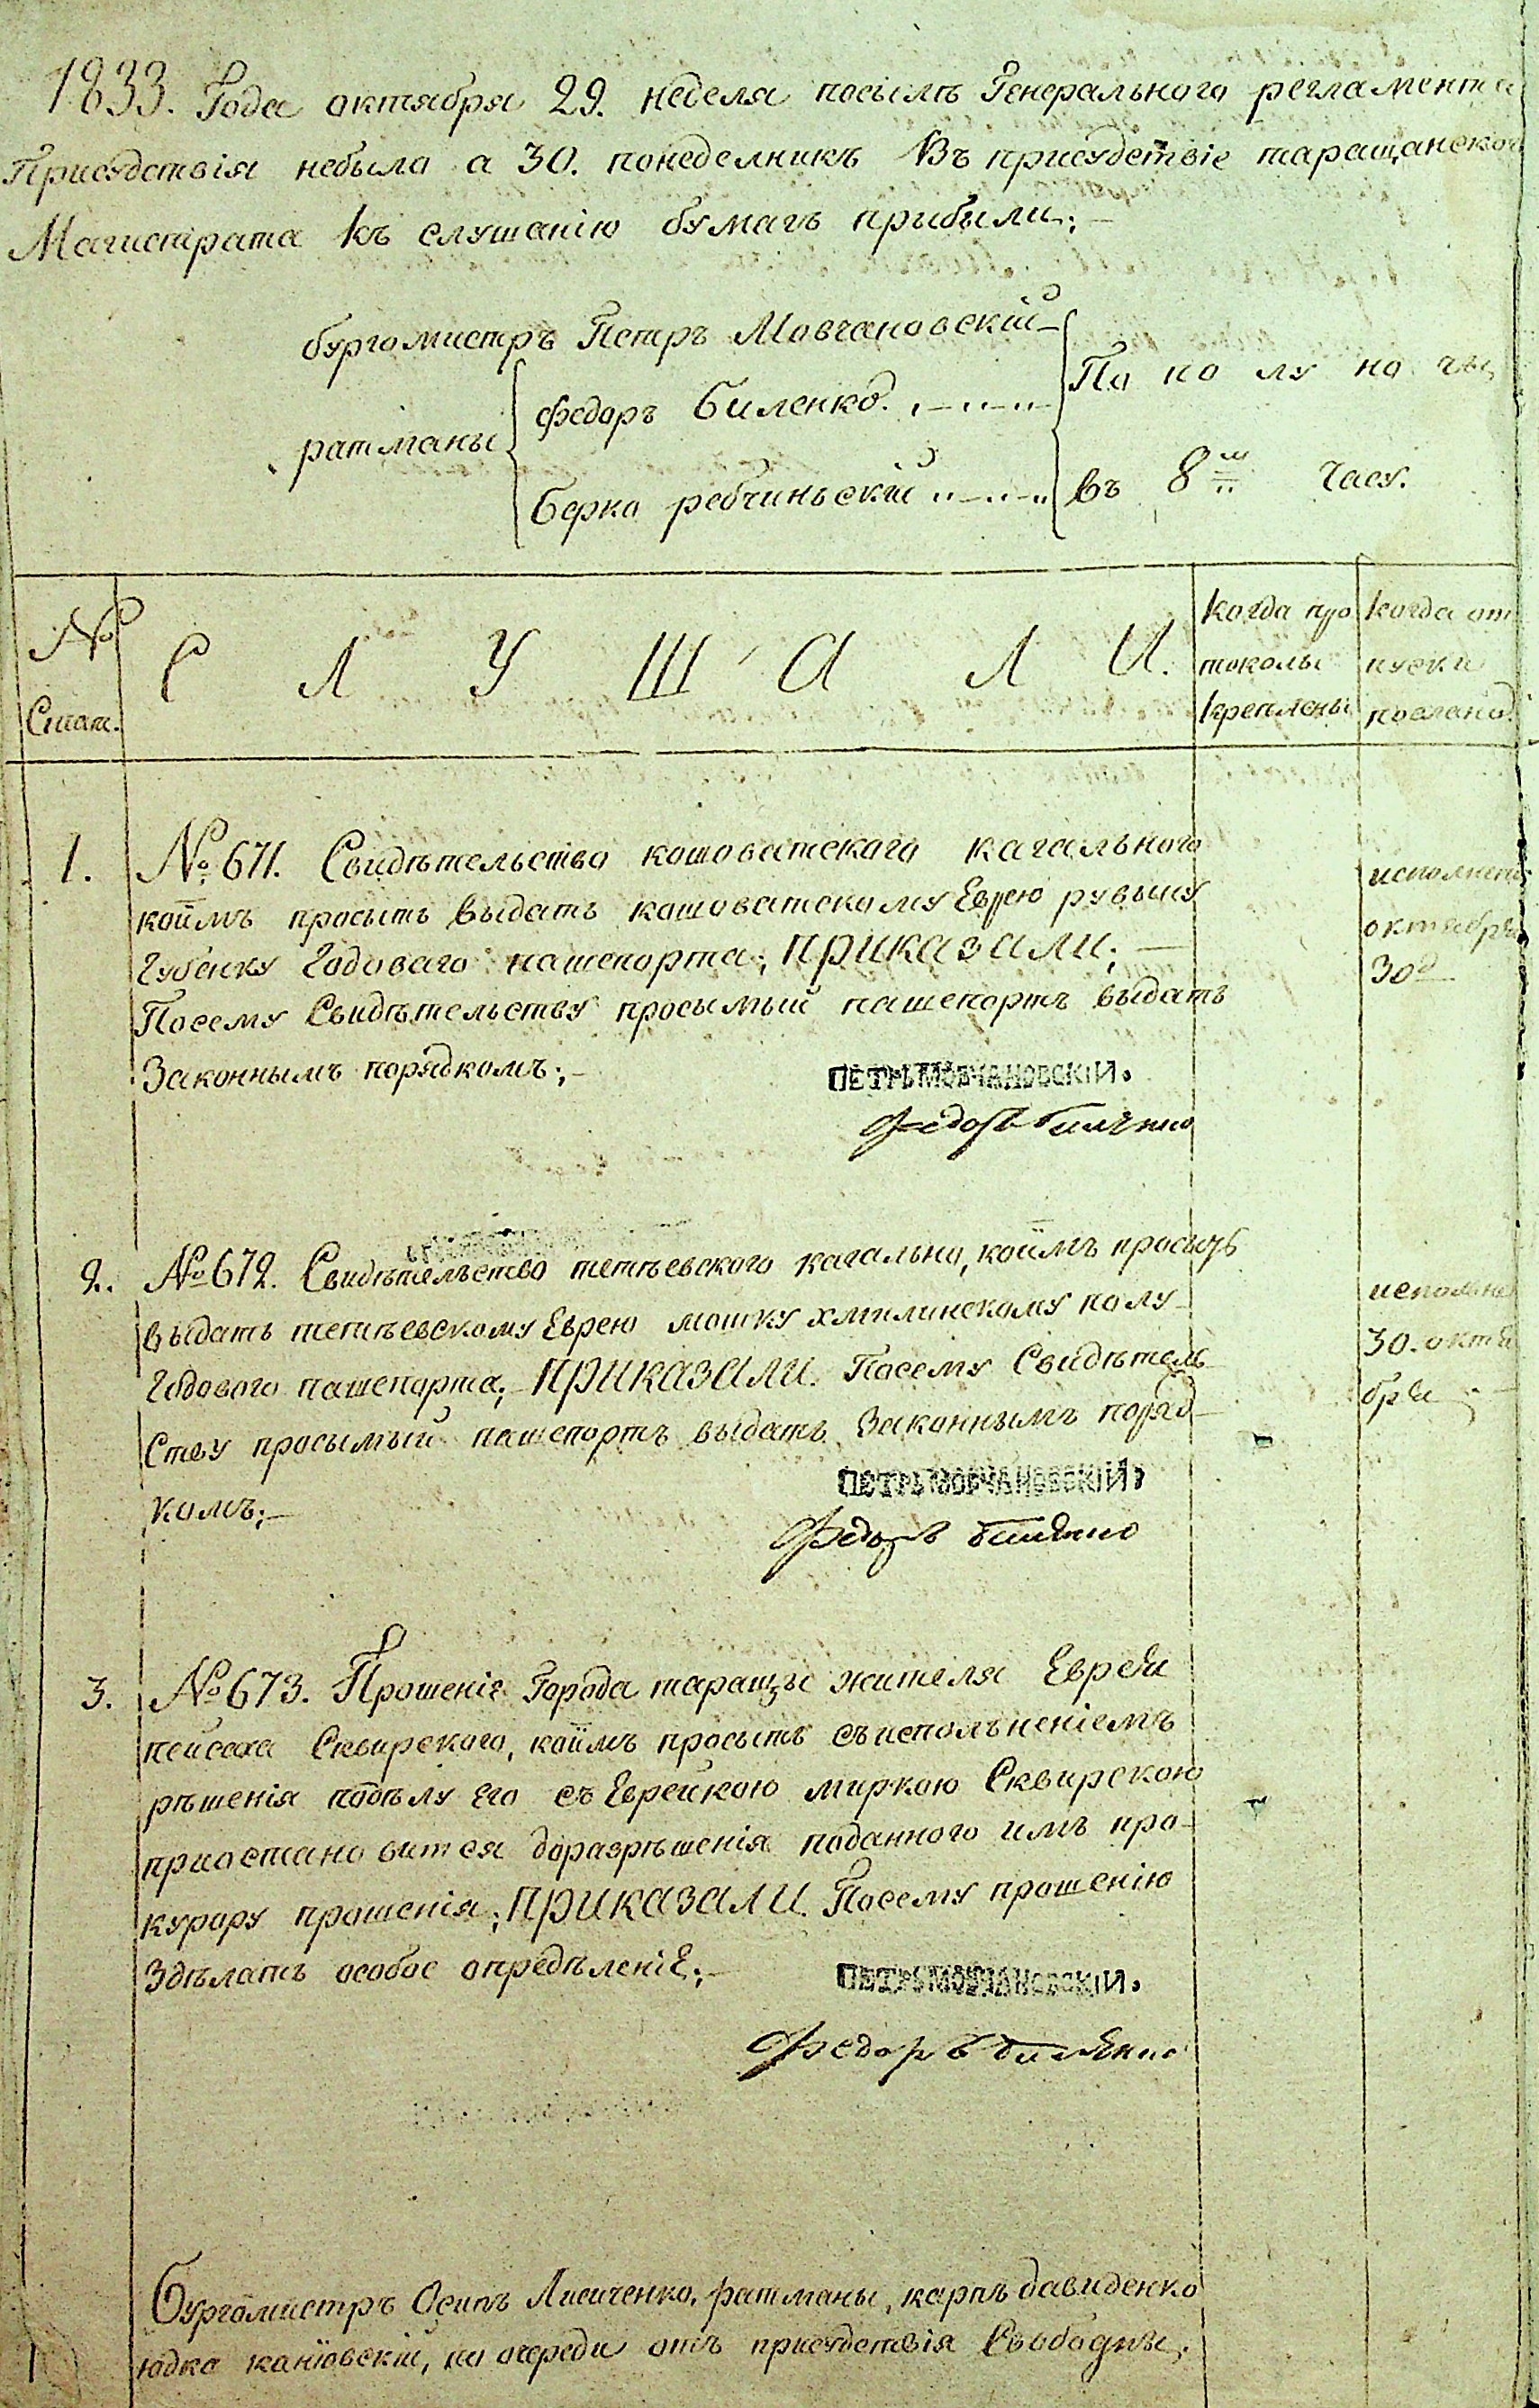 1833. Года октября 29. неделя посылѣ Генерального регламента
Присудствія небыло а 30. понеделникъ Въ присудствіе таращанского
Магистрата къ слушанію бумагъ прибыли;
бургомистръ Петръ Мовчановскій
ратманы
Федоръ Биленко.
Берко ребчиньскій
По по лу но чы
въ 8 м часу.
№ Стат.
С Л У Ш А Л И.
Когда про
токолы
крѣплены
Когда от
пуски
посланы
1. №671. Свидѣтельство кошоватского кагального
коимъ просытъ выдать кошоватскому Еврею рувыну
Губенку Годоваго пашепорта; ПРИКАЗАЛИ;
Посему Свидѣтельству просымый пашепортъ выдать
Законнымъ порядкомъ;
исполнено
октября
30д
ПЕТРЬ МОВЧАНОВСКІЙ.
Федоръ биленко
2. №672. Свидѣтельство тетѣевского кагально, коимъ просытъ
выдать тетѣевскому Еврею мошку хмилинскому полу
Годового пашепорта; ПРИКАЗАЛИ. Посему Свидѣтель
Ству просымый пашепортъ выдать Законнымъ поряд
комъ;
исполнено
30. октя
бря
ПЕТРЬ МОВЧАНОВСКІЙ.
Федоръ биленко
3. №673. Прошеніе Города таращы жителя Еврея
пейсаха Сквирского, коимъ просытъ съисполъненіемъ
рѣшенія подѣлу Его съ Еврейкою миркою Сквирскою
приостановится доразрѣшенія поданного имъ про
курору прошенія; ПРИКАЗАЛИ. Посему прошенію
Здѣлать особое опредѣленіЕ;
ПЕТРЬ МОВЧАНОВСКІЙ.
Федоръ биленко
Бургомистръ Осипъ Лисиченко, ратманы, карпъ давиденко
юдко каніовскій, по очереди отъ присудствія Свободны;